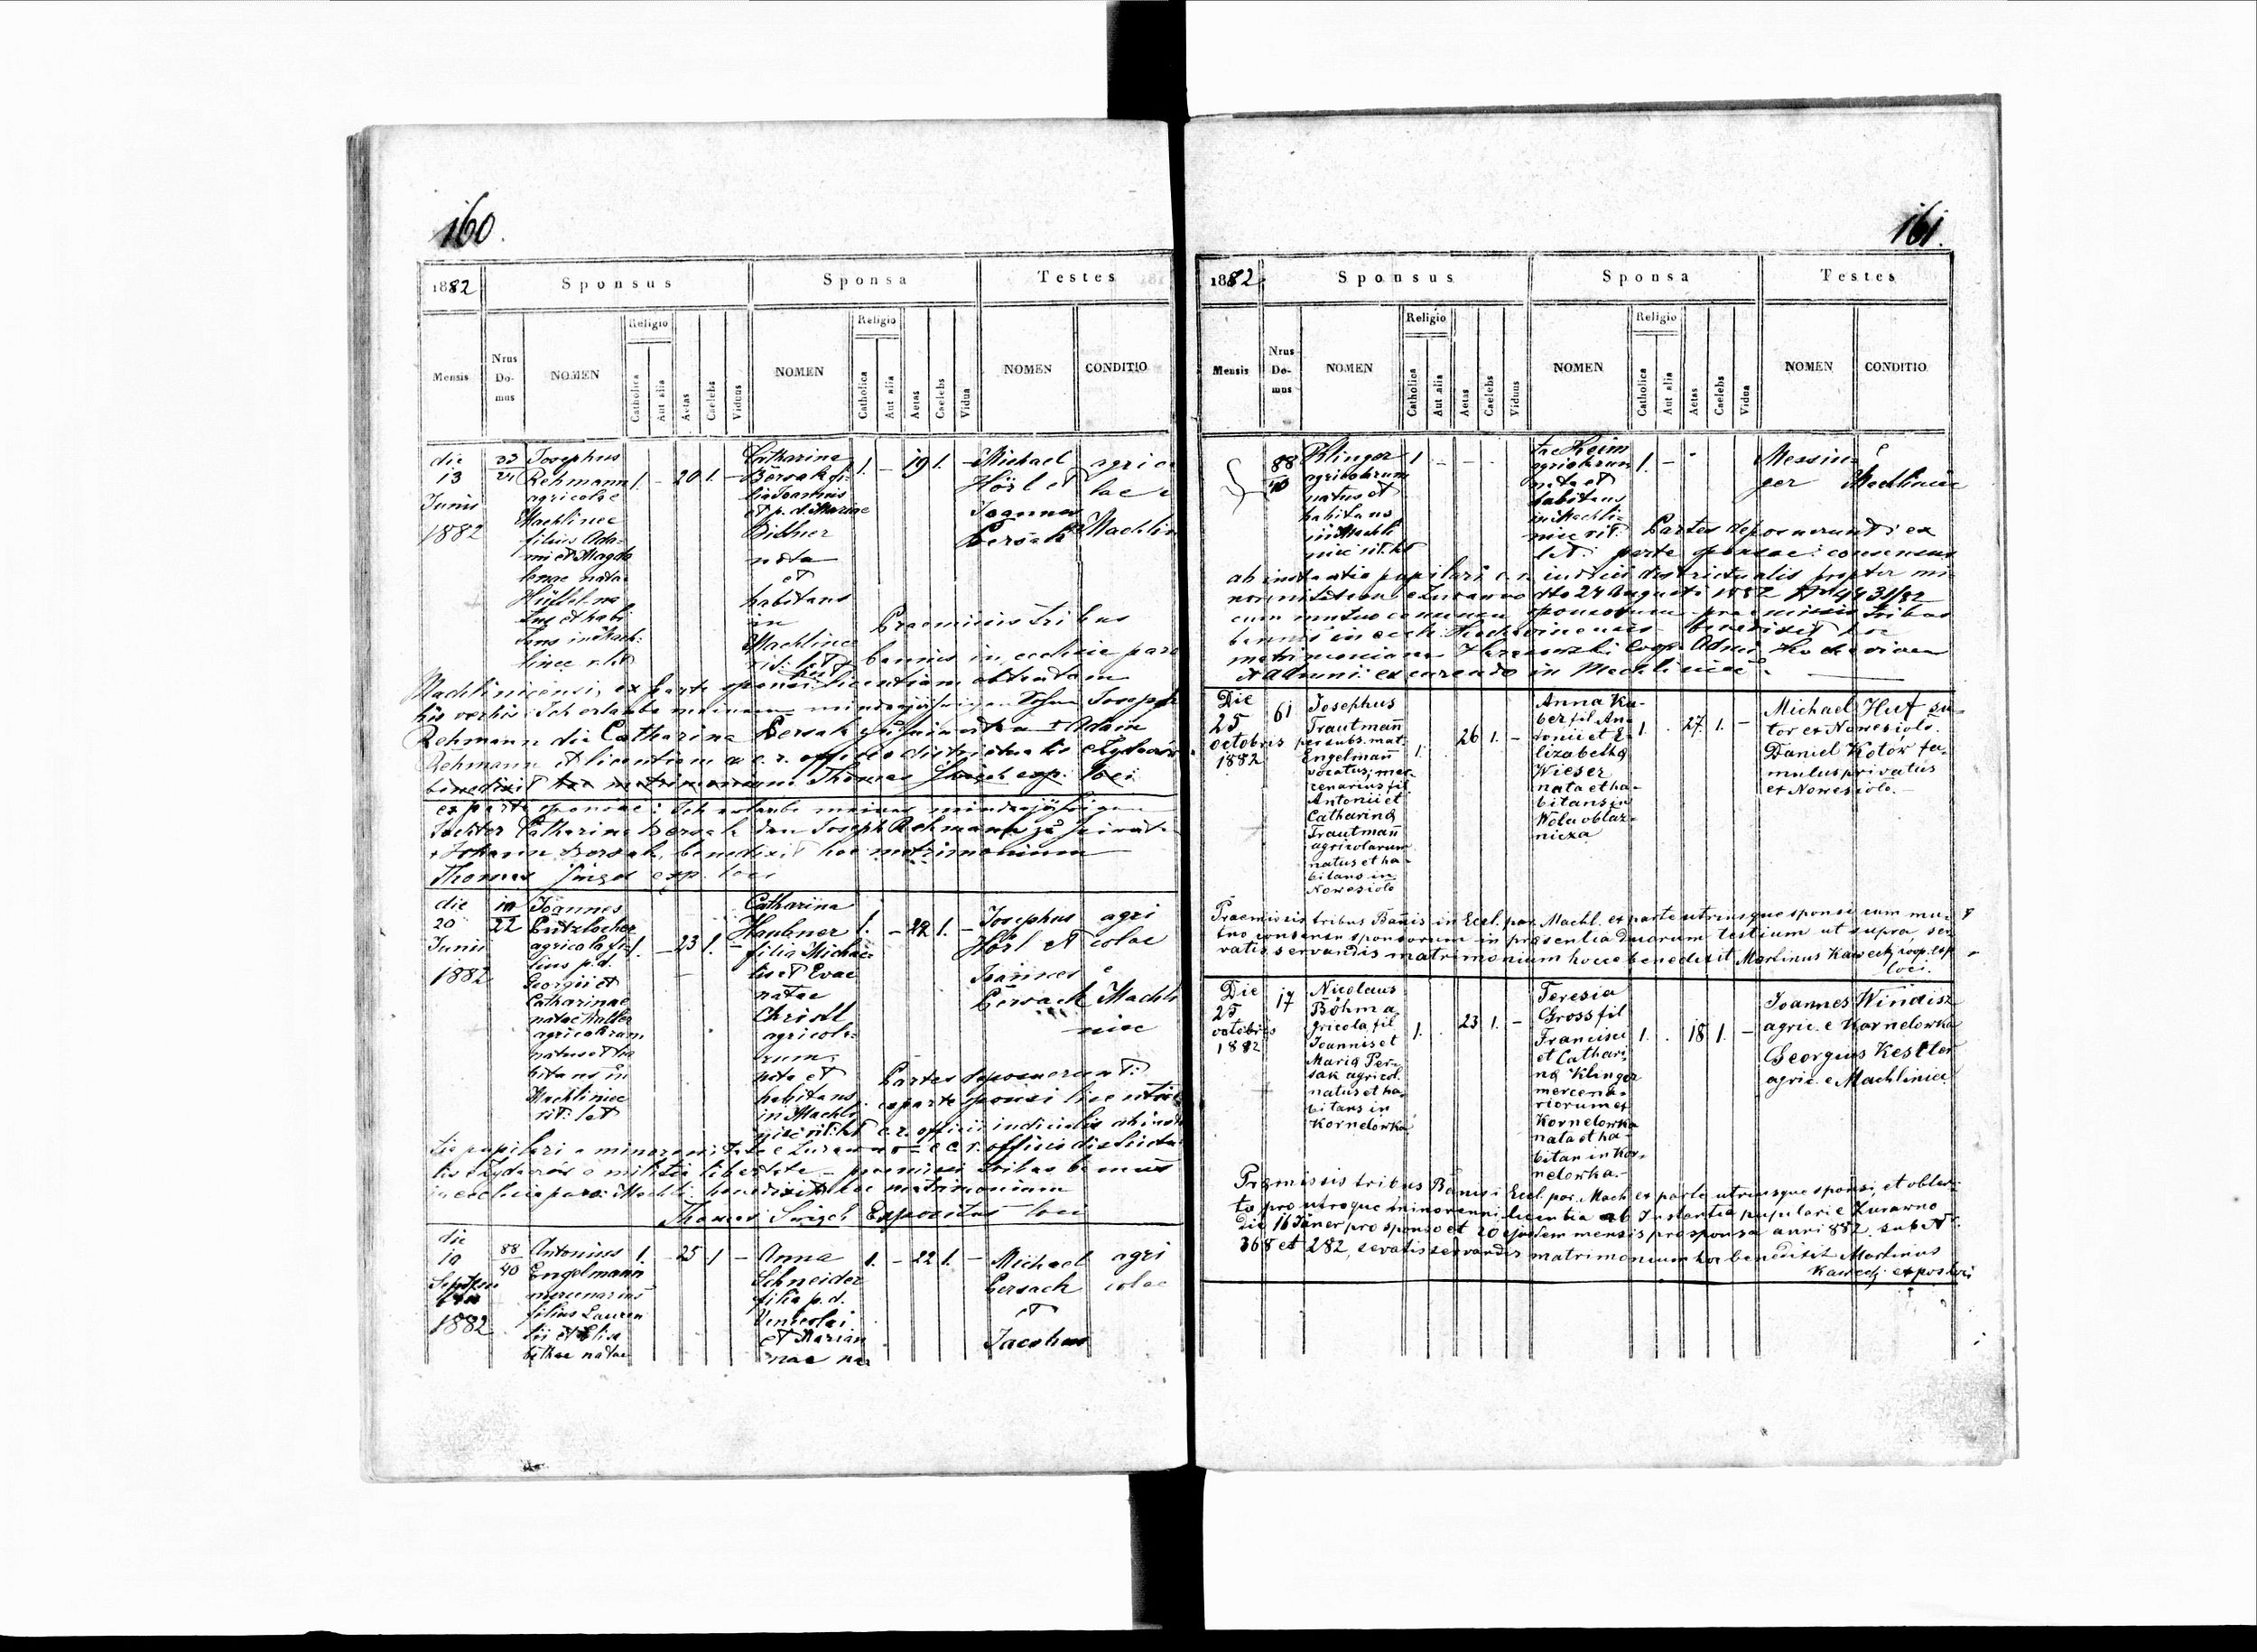 160.
1882
Sponsus
Sponsa
Testes
Mensis
Nrus Do- mus
NOMEN
Religio
Catholica
Aut alia
Aetas
Caelebs
Viduus
NOMEN
Religio
Catholica
Aut alia
Aetas
Caelebs
Vidua
NOMEN
CONDITIO
die
13
Junii
1882
Josephus
Rehmann
agricolae
Machlinec
filius Ada-
mi et Magda
lenae natae
tus et habi
tans in Mach:
linec r. lat
1. - 20 1. -
Catharina
Bersak fi-
lia Joannis
et p. d. Mariae
Bithner
nata
et
habitans
in
Machlince
rit: lat
1. - 19 1. -
Michael
Hörl et
Joannes
Bersak
agrico
lae e
Machlin
Praemissis tribus
bannis in ecclesia paro
Machliniensi, ex parte sponsi licentiam obtentam
his verbis: Ich erlaube meinem minderjährigen Sohne Joseph
Rehmann die Catharina Bersak zu heiraten + Adam
Rehmann et licentiam a c. r. officio districtualis Żydaczów
benedixit hoc matrimonium Thomas exp. loci
ex parte sponsae: Ich erlaube meiner minderjährigen
Tochter Catharina Bersak den Joseph Rehmann zu heirat-
+ Johann Bersak, benedixit hoc matrimonium
Thomas exp. loci
die
20
Junii
1882
22
Joannes
agricola fi-
lius p. d.
Georgii et
Catharinae
natae Walter
agricolarum
natus et ha
bitans in
Machliniec
rit: lat
1. - 23 1. -
Catharina
Haubner
filia Michae-
lis et Evae
natae
Christl
agricola-
rum
nata et
habitans
in Machli
niec rit: lat
1. - 22 1. -
Josephus
Hörl et
Joannes
Bersack
agri
colae
e
Machli
niec
Partes deposuerunt:
exparte sponsi licentia
c. r. officii iudicialis ab instan
tia pupilari e minorenitate e Żurawno et c. r. officii districtua
lis Żydaczów e militia libertate - praemissis tribus bannis
in ecclesia paro: Machli: benedixit hoc matrimonium
Thomas Expositus loci
die
19
Septem
bris
1882
88
40
Antonius
Engelmann
mercenarius
filius Lauren
tii et Elisa
bethae natae
1. - 25 1 -
Anna
Schneider
filia p. d.
Venceslai
et Marian
nae na
1. - 22 1. -
Michael
Bersach
et
Jacobus
agri
colae
161.
1882
Sponsus
Sponsa
Testes
Mensis
Nrus Do- mus
NOMEN
Religio
Catholica
Aut alia
Aetas
Caelebs
Viduus
NOMEN
Religio
Catholica
Aut alia
Aetas
Caelebs
Vidua
NOMEN
CONDITIO
88
40
Klinger
agricolarum
natus et
habitans
in Machli
niec rit. lat
1 - - -
tae Keim
agricolarum
nata et
habitans
in Machli-
niec rit:
lat:
1. -
Messin-
ger
e
Machliniec
Partes deposuerunt: ex
parte sponsae: consensus
ab instantia pupilari c. r. iudicii districtualis propter mi
norenitatem e Żurawno dto 24 Augusti 1882 Nr 4431/82
cum mutuo consensu sponsorum praemissis tribus
bannis in eccle: benedixit hoc
matrimonium Coop. Adm:
in Machliniec.
Die
25
octobris
1882
61
Josephus
Trautmañ
per subs. mat.
Engelmañ
vocatus, mer-
cenarius fil
Antonii et
Catharina
Trautmañ
agricolarum
natus et ha-
bitans in
Nowesioło
1. 26 1. -
Anna Ku-
ber fil An-
tonii et E-
lizabetha
Wieser
nata et ha-
bitans in
Wola obłaz-
nicza
1. 27 1. -
Michael Huf su-
tor ex Nowesioło.
Daniel Kotów fa-
mulus privatus
ex Nowesioło.
Praemissis tribus Bañis in Eccl. par. Machl. ex parte utriusque sponsi cum mu-
tuo consensu sponsorum in praesentia duorum testium ut supra ser
vatis servandis matrimonium hocce benedixit Martinus Kawecki coop. exp
loci.
Die
25
octobris
1882
17
Nicolaus
Böhm a
gricola fil
Joannis et
Maria Per-
sak agricol.
natus et ha-
bitans in
Kornelówka
1. 23 1. -
Teresia
Gross fil
Francisci
et Cathari-
na Klinger
mercena-
riorum ex
Kornelowka
nata et ha-
bitan in Kor-
nelowka.-
1. . 18 1. -
Joannes Windisz
agric. e Kornelowka
Georgius Kestler
agric. e Machliniec
Praemissis tribus Bañis i Eccl. par. Mach. ex parte utriusque sponsi, et obten-
ta pro utroque minorenni licentia ab Instantia pupilari e Żurawno
die 16 Jäner pro sponso et 20 ejusdem mensis pro sponsa anni 882 sub N.
368 et 282, sevatis servandis matrimonium hoc benedixit Martinus
Kawecki expos loci